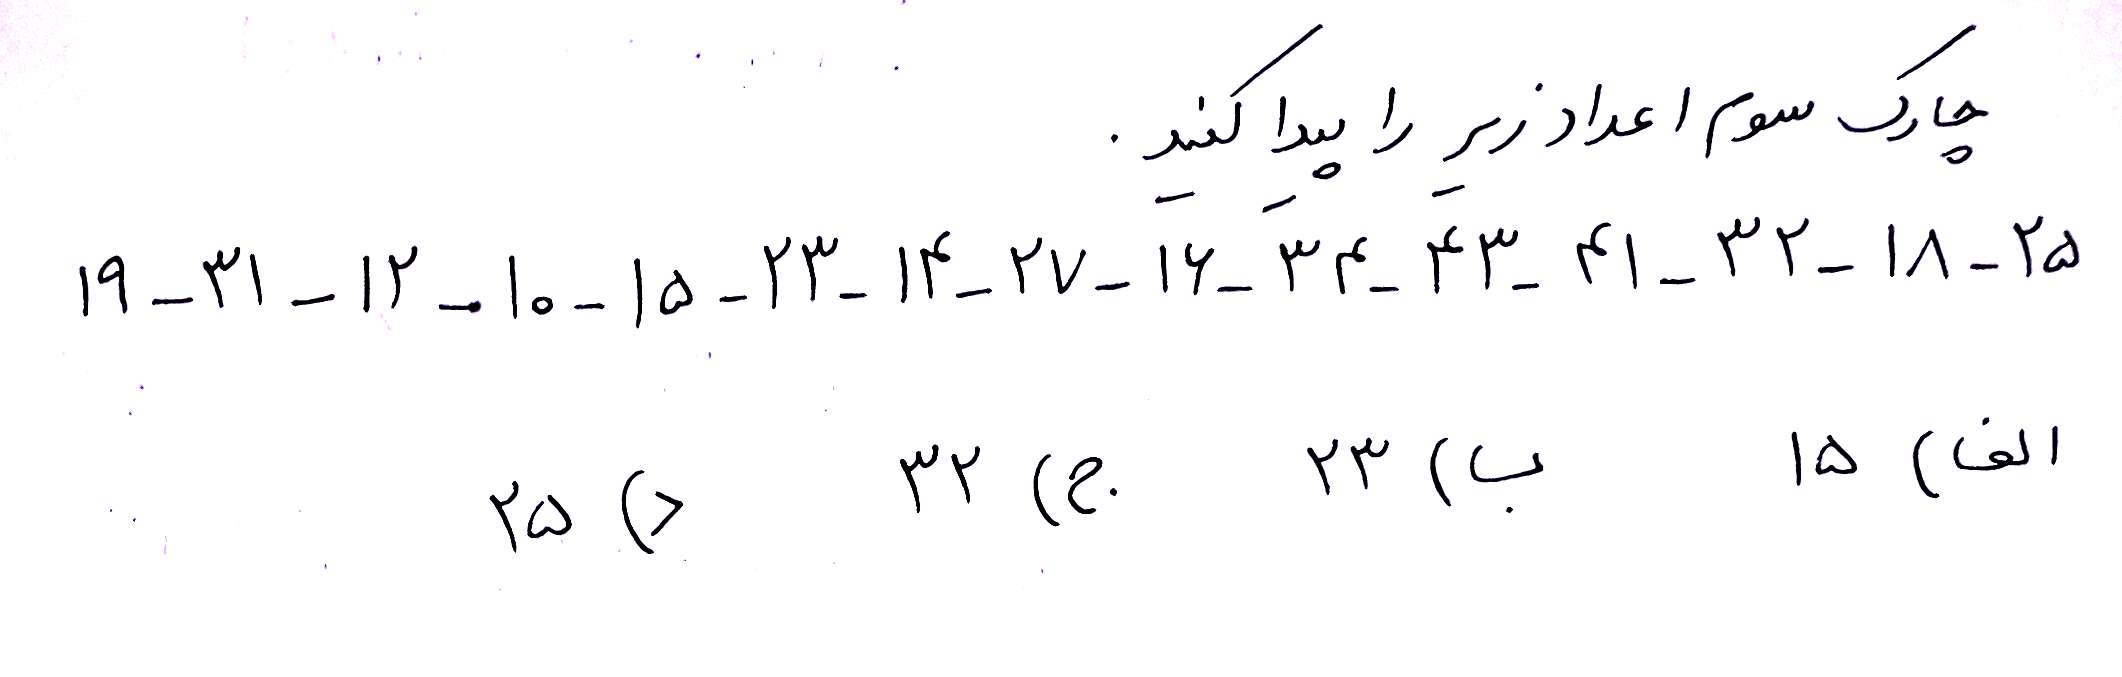 چارک سوم اعداد زیر را پیدا کنید .
۲۵ - ۱۸ - ۳۲ - ۴۱ - ۴۳ - ۳۴ - ۱۶ - ۲۷ - ۱۴ - ۲۳ - ۱۵ - ۱۰ - ۱۲ - ۳۱ - ۱۹
الف) ۱۵ ب) ۲۳ ج) ۳۲ د) ۲۵